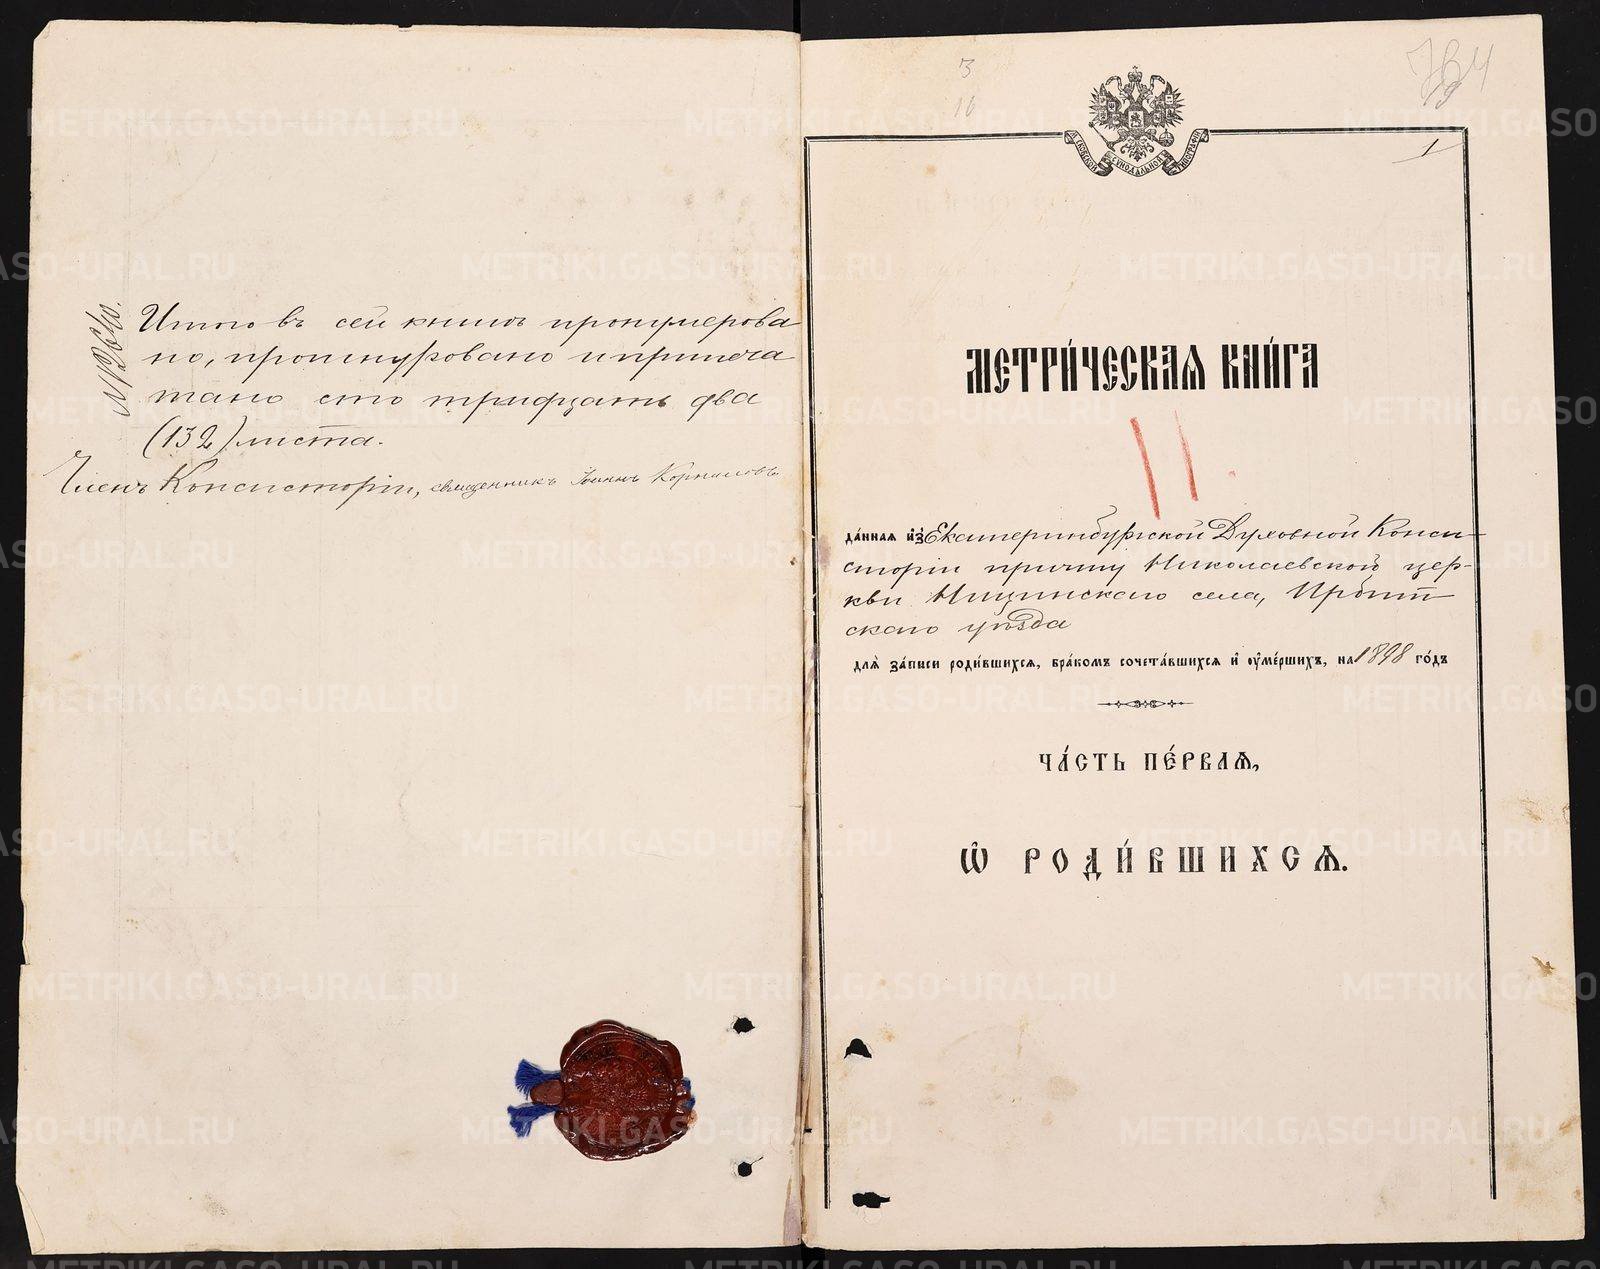 Итого въ сей книгѣ пронумерова
но, прошнуровано и припеча
тано сто тридцать два
(132) листа.
Членъ Консисторіи, священникъ Іоаннъ
3
10
1
МЕТРИ́ЧЕСКАѦ КНИ́ГА
11.
да́ннаѧ и҆з̾ Екатеринбургской Духовной Конси-
сторіи причту Николаевской цер-
кви Ницинскаго села, Ирбит
скаго уѣзда
для̀ за́писи роди́вшихсѧ, бра́комъ сочета́вшихсѧ и҆ ᲂу҆ме́ршихъ, на 1898 го́дъ
ЧА́СТЬ ПЕ́РВАѦ,
Ѽ РОДИ́ВШИХСѦ.
METRIKI.GASO-URAL.RU